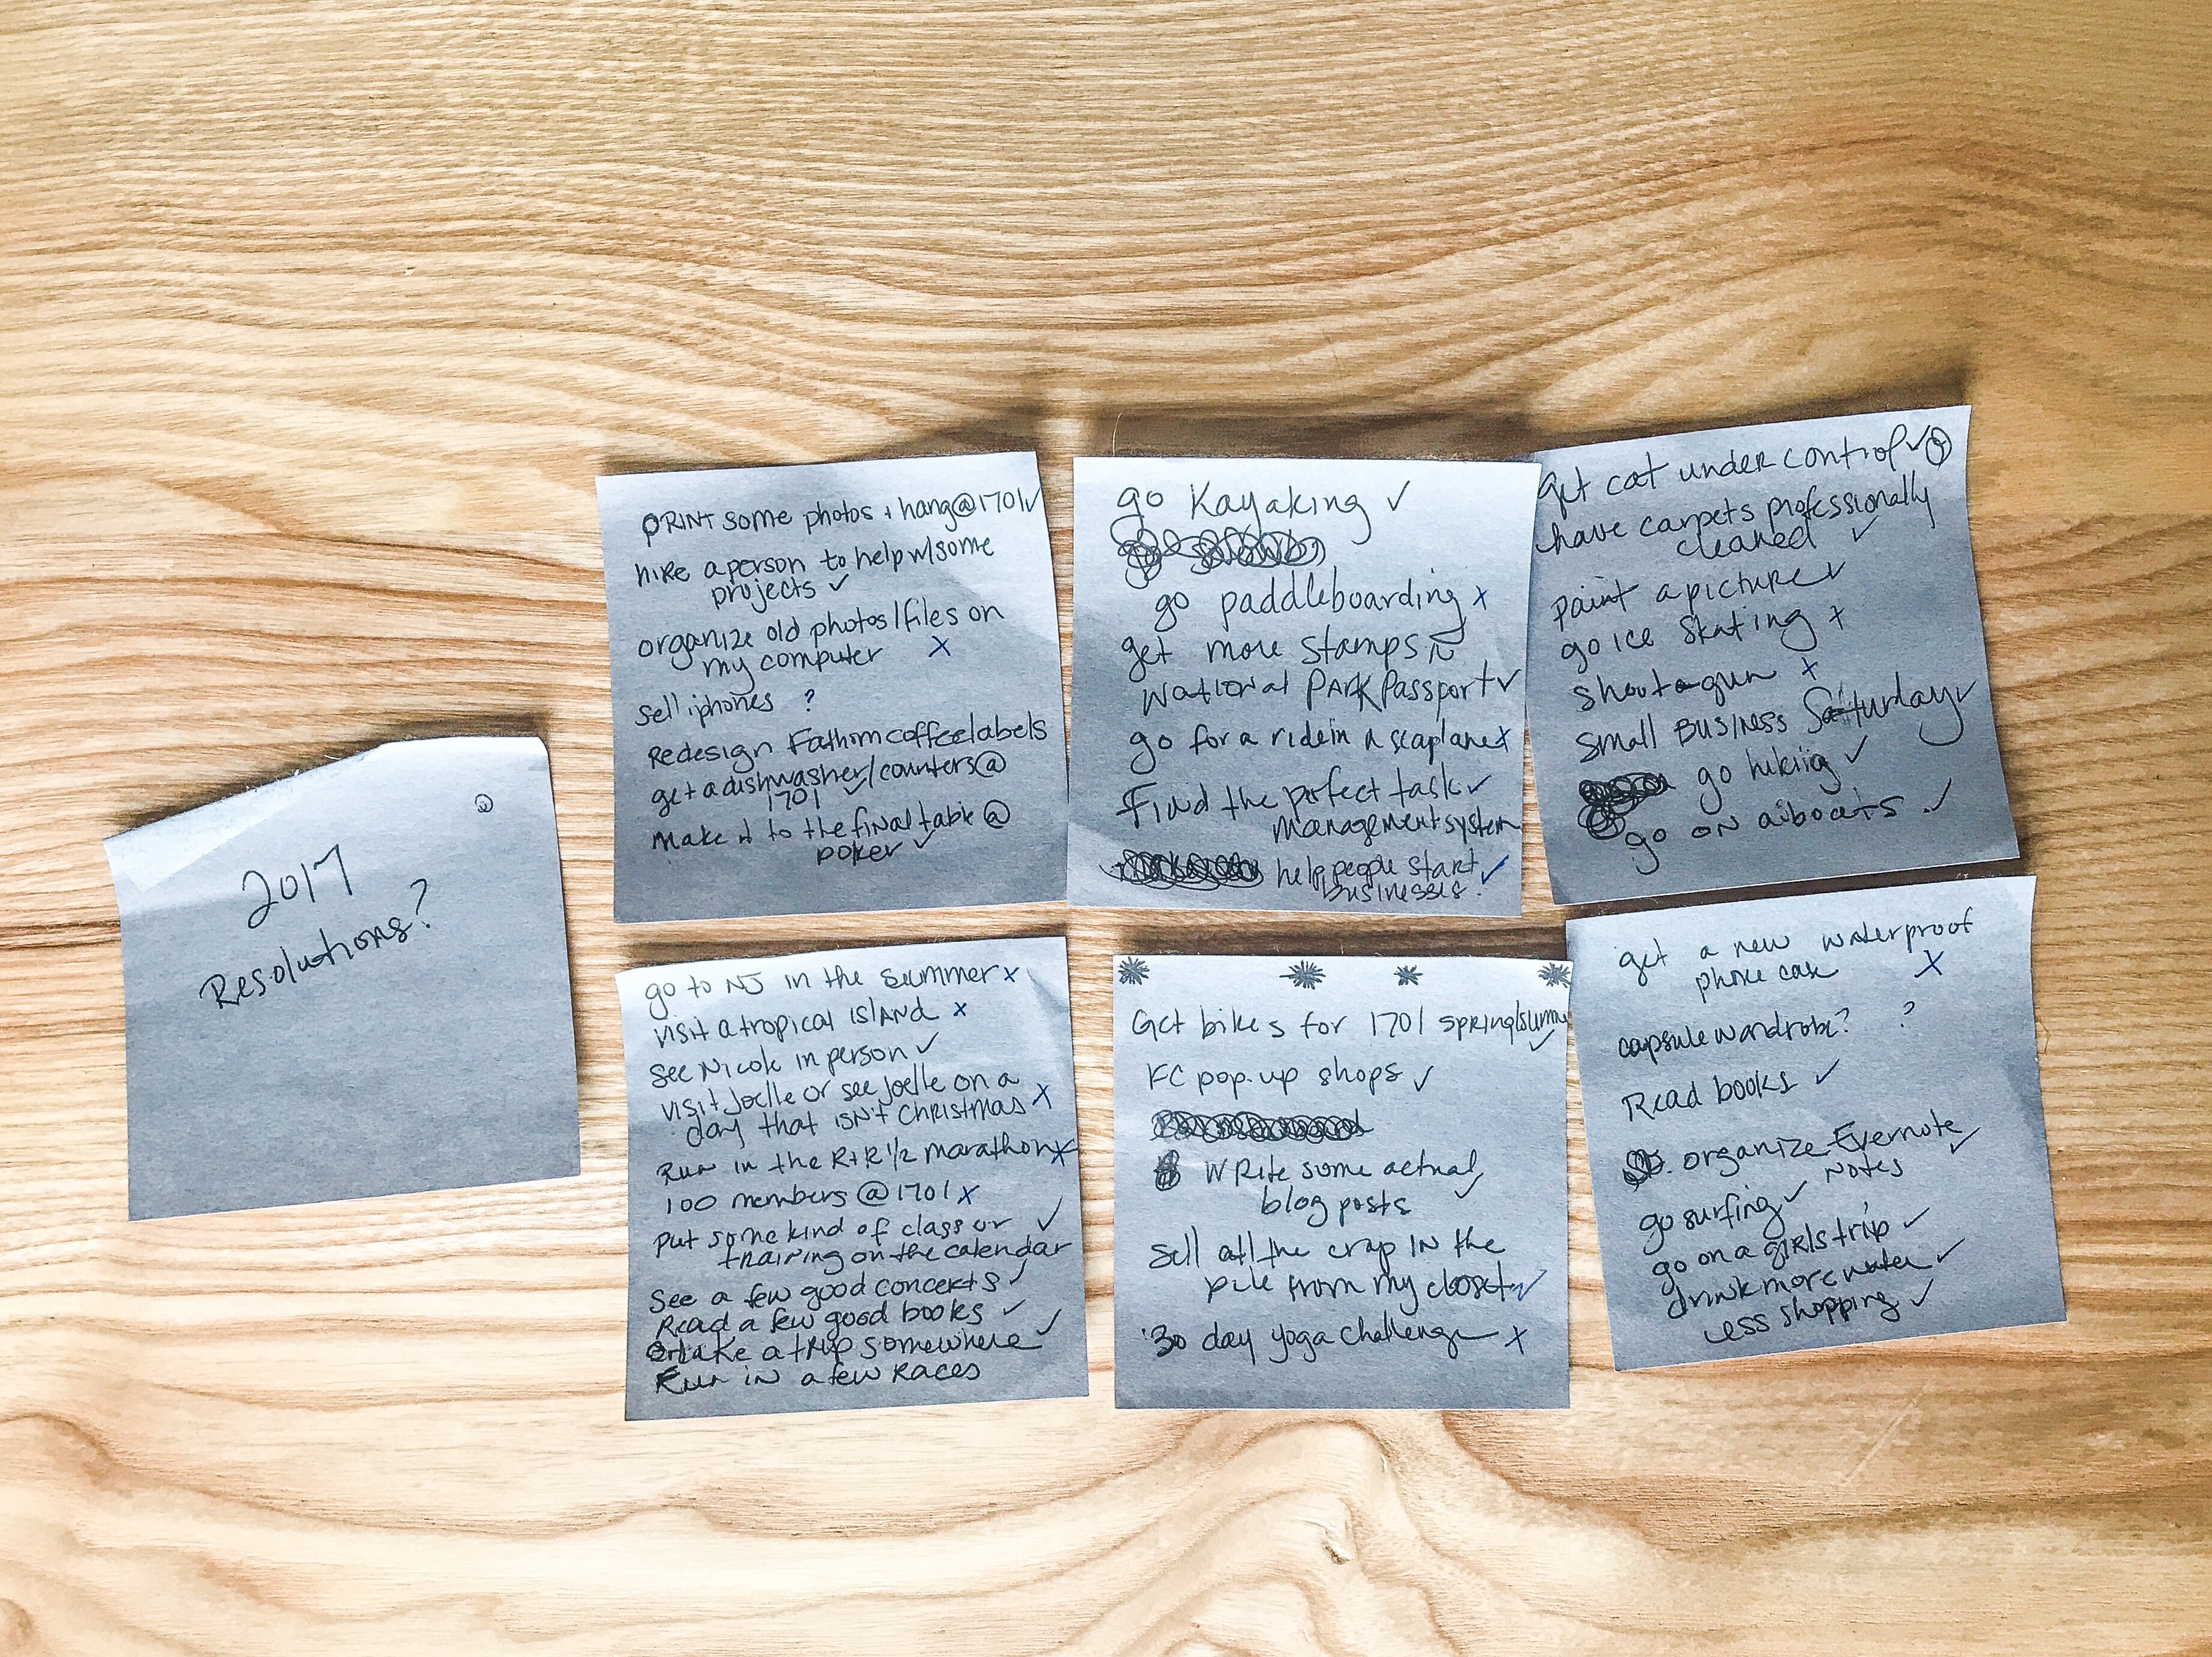 2017
Resolutions?
PRINT some photos + hang@1701✓
hire a person to help w/some
projects ✓
organize old photos/files on
my computer X
sell iphones ?
Redesign Fathom coffee labels
get a dishwasher/counters@
1701 ✓
make it to the final table @
poker ✓
go kayaking ✓
go paddleboarding x
get more stamps in
National PARK Passport ✓
go for a ride in a seaplane x
Find the perfect task ✓
management system
help people start ✓
businesses.
get cat under control ✓
have carpets professionally
cleaned ✓
paint a picture ✓
go ice skating x
shoot a gun x
small BUSINESS Saturday ✓
go hikiig ✓
go ON aiboats ✓
go to NJ in the summer x
visit a tropical ISLAND x
see Nicole in person ✓
visit Joelle or see Joelle on a
day that ISN'T Christmas X
Run in the R+R 1/2 marathon x
100 members @ 1701 x
put some kind of class or ✓
training on the calendar
See a few good concerts ✓
Read a few good books ✓
take a trip somewhere ✓
Run in a few Races
Get bikes for 1701 spring/summe
✓
FC pop-up shops ✓
WRite some actual
blog posts ✓
sell all the crap IN the
pile from my closet ✓
30 day yoga challenge x
get a new waterproof
phone case X
capsule wardrobe? ?
Read books ✓
organize Evernote
Notes ✓
go surfing ✓
go on a girls trip ✓
drink more water ✓
less shopping ✓